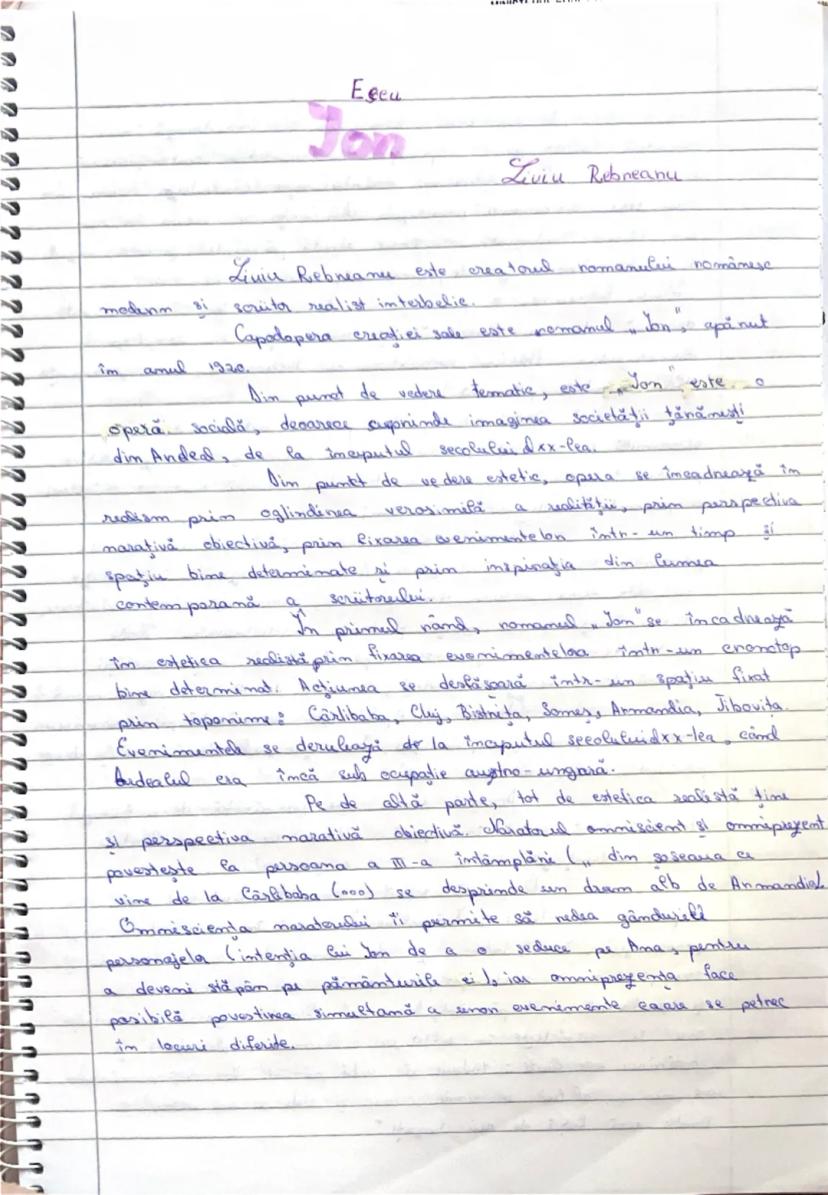 Eseu
Ion
Liviu Rebreanu
Liviu Rebreanu este creatorul romanului românesc
modern și scriitor realist interbelic.
Capodopera creației sale este romanul „Ion", apărut
în anul 1920.
Din punct de vedere tematic, este „Ion" este o
operă socială, deoarece surprinde imaginea societății țărănești
din Ardeal, de la începutul secolului al xx-lea.
Din punkt de vedere estetic, opera se încadrează în
realism prin oglindirea verosimilă a realității, prin perspectiva
narativă obiectivă, prin fixarea evenimentelor într-un timp și
spațiu bine determinate și prin inspirația din lumea
contemporană a scriitorului.
În primul rând, romanul „Ion" se încadrează
în estetica realistă prin fixarea evenimentelor într-un cronotop
bine determinat. Acțiunea se desfășoară într-un spațiu fixat
prin toponime: Cârlibaba, Cluj, Bistrița, Someș, Armandia, Jibovița.
Evenimentele se derulează de la începutul secolului al xx-lea, când
Ardealul era încă sub ocupație austro-ungară.
Pe de altă parte, tot de estetica realistă ține
și perspectiva narativă obiectivă. Naratorul omniscient și omniprezent
povestește la persoana a III-a întâmplări („din șoseaua ce
vine de la Cârlibaba (...) se desprinde un drum alb de Armandia).
Omnisciența naratorului îi permite să redea gândurile
personajela (intenția lui Ion de a o seduce pe Ana, pentru
a deveni stăpân pe pământurile ei), iar omniprezența face
posibilă povestirea simultană a unor evenimente caare se petrec
în locuri diferite.